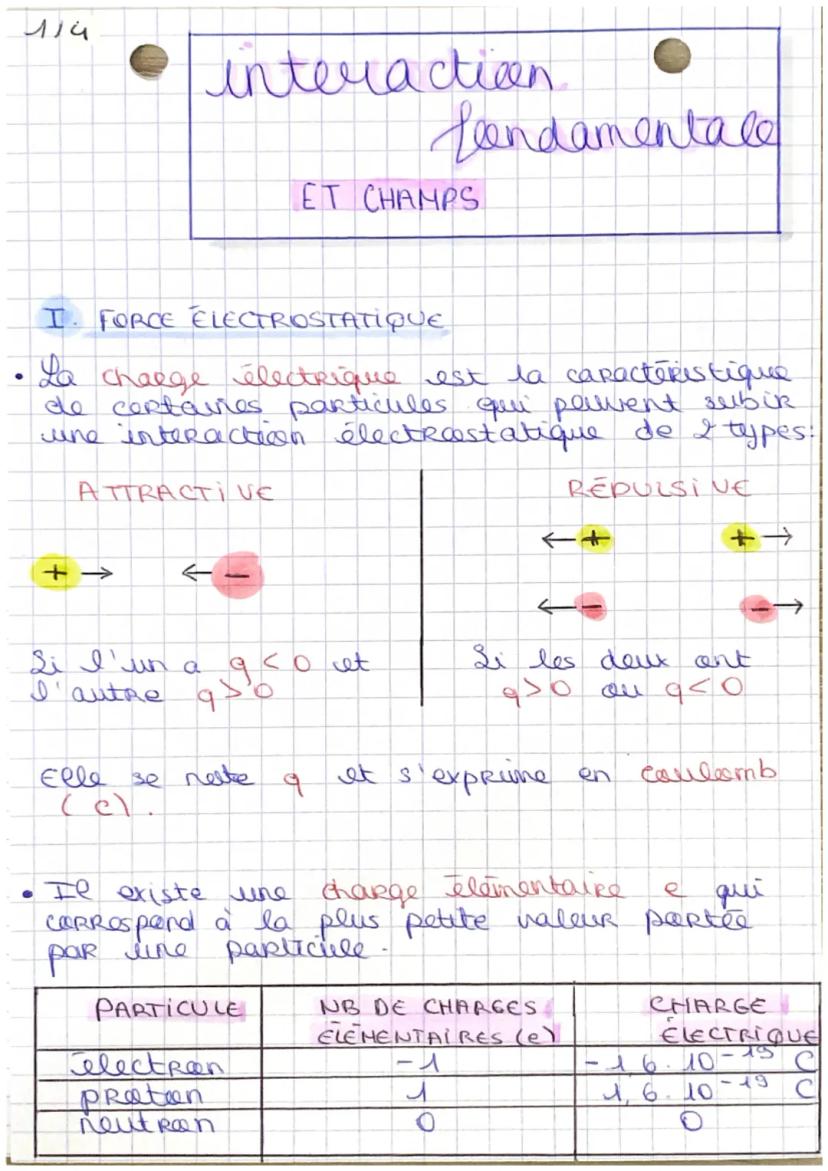 1/4
interaction
fondamentale
ET CHAMPS
I. FORCE ÉLECTROSTATIQUE
• La charge électrique est la caractéristique
de certaines particules qui peuvent subir
une interaction électrostatique de 2 types:
ATTRACTIVE
+ → ← −
Si l'un a q < 0 et
l'autre q > 0
RÉPULSIVE
← + + →
← − − →
Si les deux ont
q > 0 ou q < 0
Elle se note q et s'exprime en coulomb
(C).
• Il existe une charge élémentaire e qui
correspond à la plus petite valeur portée
par une particule.
PARTICULE NB DE CHARGES ÉLÉMENTAIRES (e) CHARGE ÉLECTRIQUE
électron −1 −1,6.10⁻¹⁹ C
proton 1 1,6.10⁻¹⁹ C
neutron 0 0